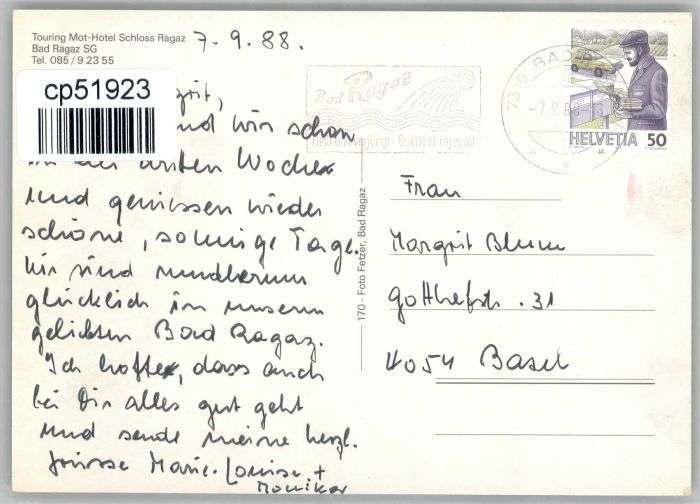 Touring Mot-Hotel Schloss Ragaz
Bad Ragaz SG
Tel. 085 / 9 23 55
7.9.88.
cp51923
wir schon
in der dritten Woche
und geniessen wieder
schöne, sonnige Tage.
Wir sind rundherum
glücklich in unserm
geliebten Bad Ragaz.
Ich hoffe, dass auch
bei Dir alles gut geht
und sende meine herzl.
Grüsse Marie-Louise +
Monika
170 - Foto Fetzer, Bad Ragaz
Bad Ragaz
BAD
HELVETIA 50
Frau
Margrit Blum
Gotthelfstr. 31
4054 Basel